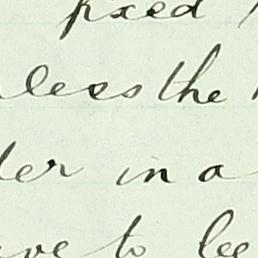 fixed
less the
der in a
ve to lee